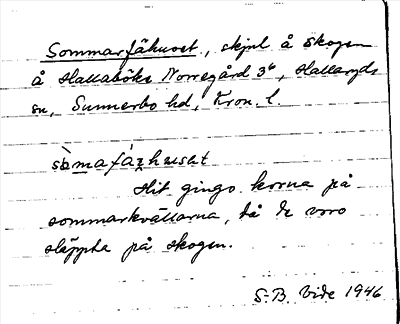 Sommarfähuset, skjul å skogen
å Hallaböke Norregård 3⁶, Hallaryds
sn, Sunnerbo hd, Kron. l.
sòmafáʒhuset
Hit gingo korna på
sommarkvällarna, då de voro
släppta på skogen.
S-B. Vide 1946